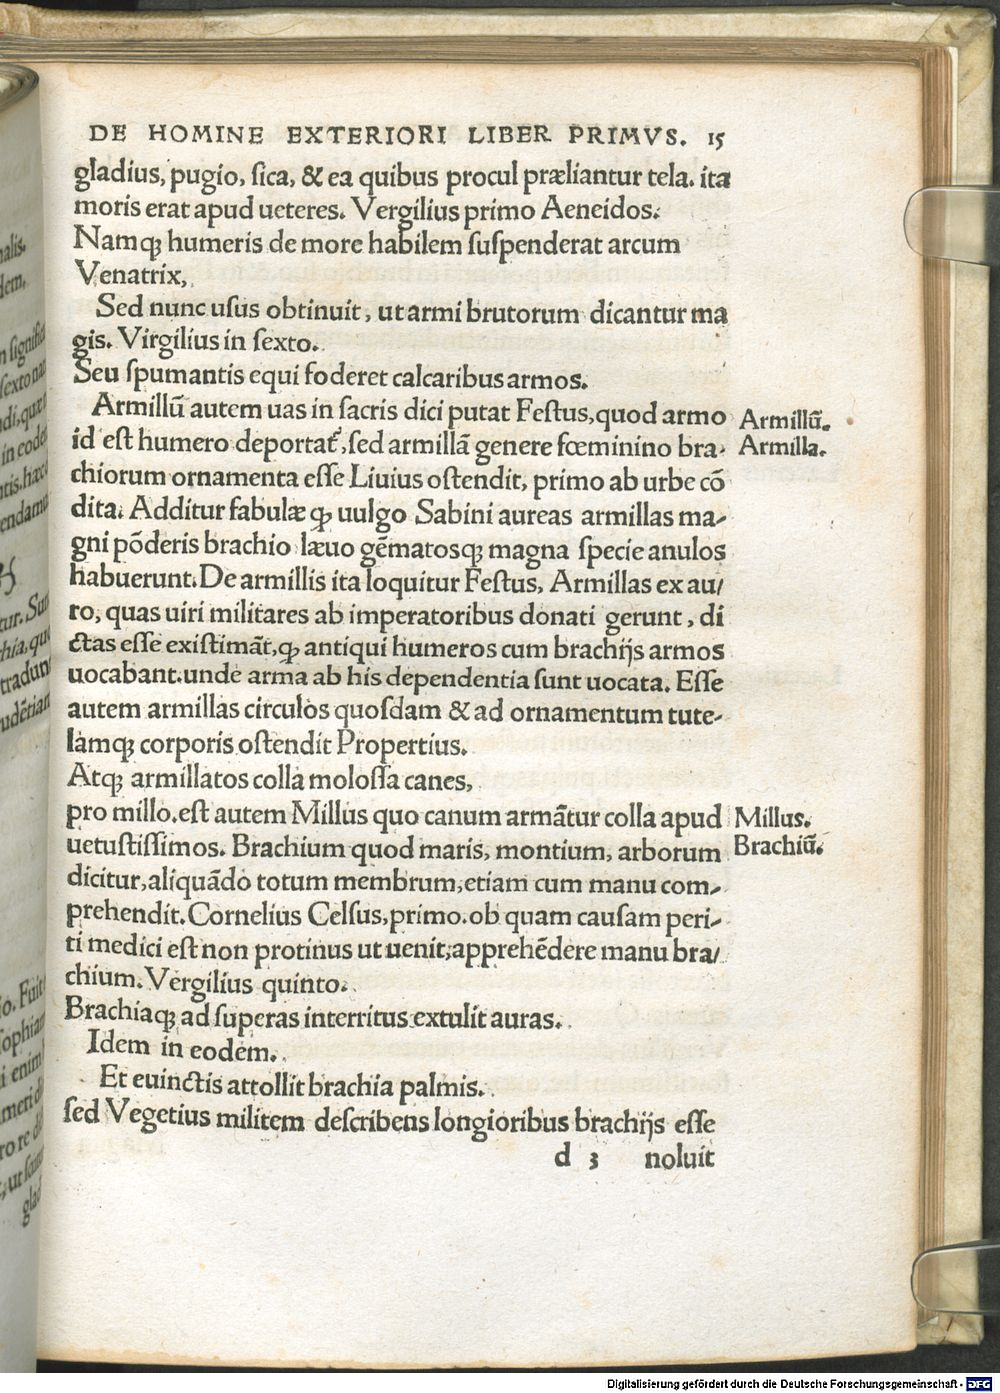 DE HOMINE EXTERIORI LIBER PRIMVS. 15
gladius, pugio, sica, & ea quibus procul præliantur tela. ita
moris erat apud ueteres. Vergilius primo Aeneidos.
Namq; humeris de more habilem suspenderat arcum
Venatrix,
Sed nunc usus obtinuit, ut armi brutorum dicantur ma
gis. Virgilius in sexto.
Seu spumantis equi foderet calcaribus armos.
Armillū autem uas in sacris dici putat Festus, quod armo
Armillū.
id est humero deportat᷑, sed armillā genere fœminino bra-
Armilla.
chiorum ornamenta esse Liuius ostendit, primo ab urbe cō
dita. Additur fabulæ ꝙ uulgo Sabini aureas armillas ma-
gni pōderis brachio læuo gēmatosq; magna specie anulos
habuerunt. De armillis ita loquitur Festus, Armillas ex au/
ro, quas uiri militares ab imperatoribus donati gerunt, di
ctas esse existimāt, ꝙ antiqui humeros cum brachijs armos
uocabant. unde arma ab his dependentia sunt uocata. Esse
autem armillas circulos quosdam & ad ornamentum tute-
lamq; corporis ostendit Propertius.
Atq; armillatos colla molossa canes,
pro millo. est autem Millus quo canum armātur colla apud
Millus.
uetustissimos. Brachium quod maris, montium, arborum
Brachiū.
dicitur, aliquādo totum membrum, etiam cum manu com-
prehendit. Cornelius Celsus, primo. ob quam causam peri-
ti medici est non protinus ut uenit, apprehēdere manu bra/
chium. Vergilius quinto.
Brachiaq; ad superas interritus extulit auras.
Idem in eodem.
Et euinctis attollit brachia palmis.
sed Vegetius militem describens longioribus brachijs esse
d 3 noluit
Digitalisierung gefördert durch die Deutsche Forschungsgemeinschaft - DFG